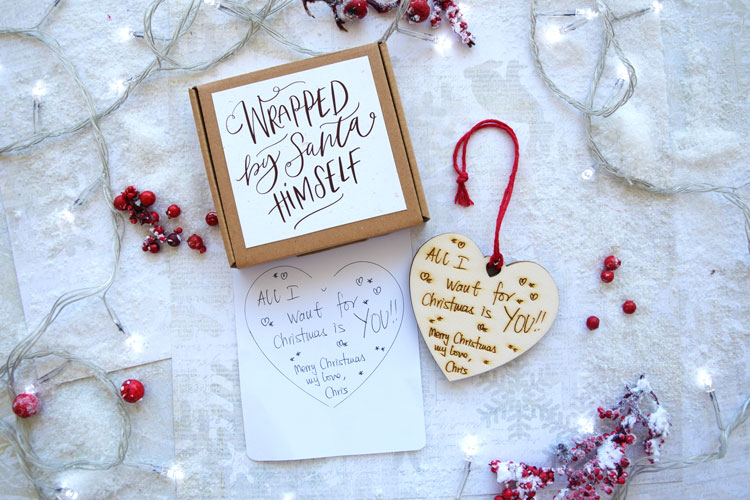 WRAPPED
by Santa
HIMSELF
ALL I
want for
Christmas is
YOU!!
Merry Christmas
my love,
Chris
ALL I
want for
Christmas is
YOU!!
Merry Christmas
my love,
Chris